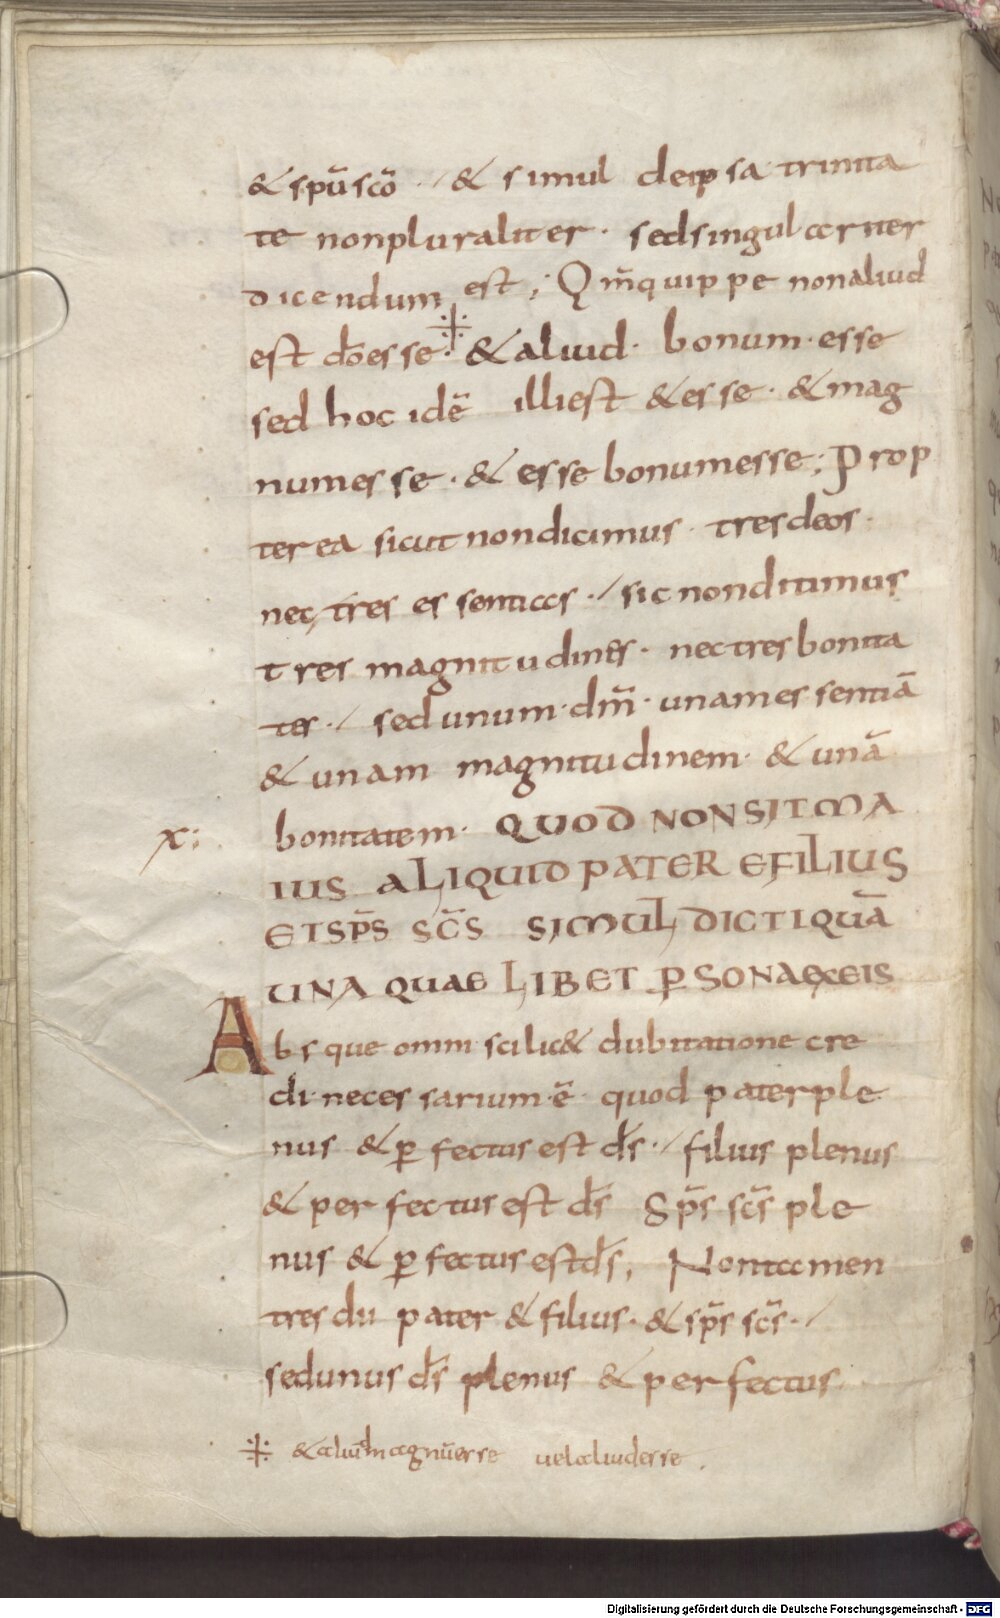 & spū scō ·,· & simul deipsa trinita
te nonpluraliter · sedsingulariter
dicendum est ; Qm̄quippe nonaliud
est d̄oesse · ※ &aliud · bonum · esse
sed hoc idē illiest &esse · &mag
numesse · & esse bonumesse ; Prop
terea sicut nondicimus · tresdeos ·
nec tres essentias ·/ sic nonditimus
tres magnitudines · nectresbonita
tes ·/ sedunum · dm̄ · unamessentiā
& unam magnitudinem · & unā
x: bonitatem · QUOD NONSITMA
IUS ALIQUID PATER EFILIUS
ETSP̄S SC̄S SIMUL DICTIQUĀ
UNA QUAE LIBET P̱SONAEXEIS
Absque omni scilic& dubitatione cre
di · necessarium · ē · quod paterple
nus & p̱fectus est d̄s ·/ filius plenus
& perfectus est d̄s Sp̄s sc̄s ple
nus & p̱fectus estd̄s ; Nontamen
tres dii pater & filius · & sp̄s sc̄s ·/
sedunus d̄s plenus & perfectus
※ &aliud magnūesse uelaliudesse .
Digitalisierung gefördert durch die Deutsche Forschungsgemeinschaft - DFG